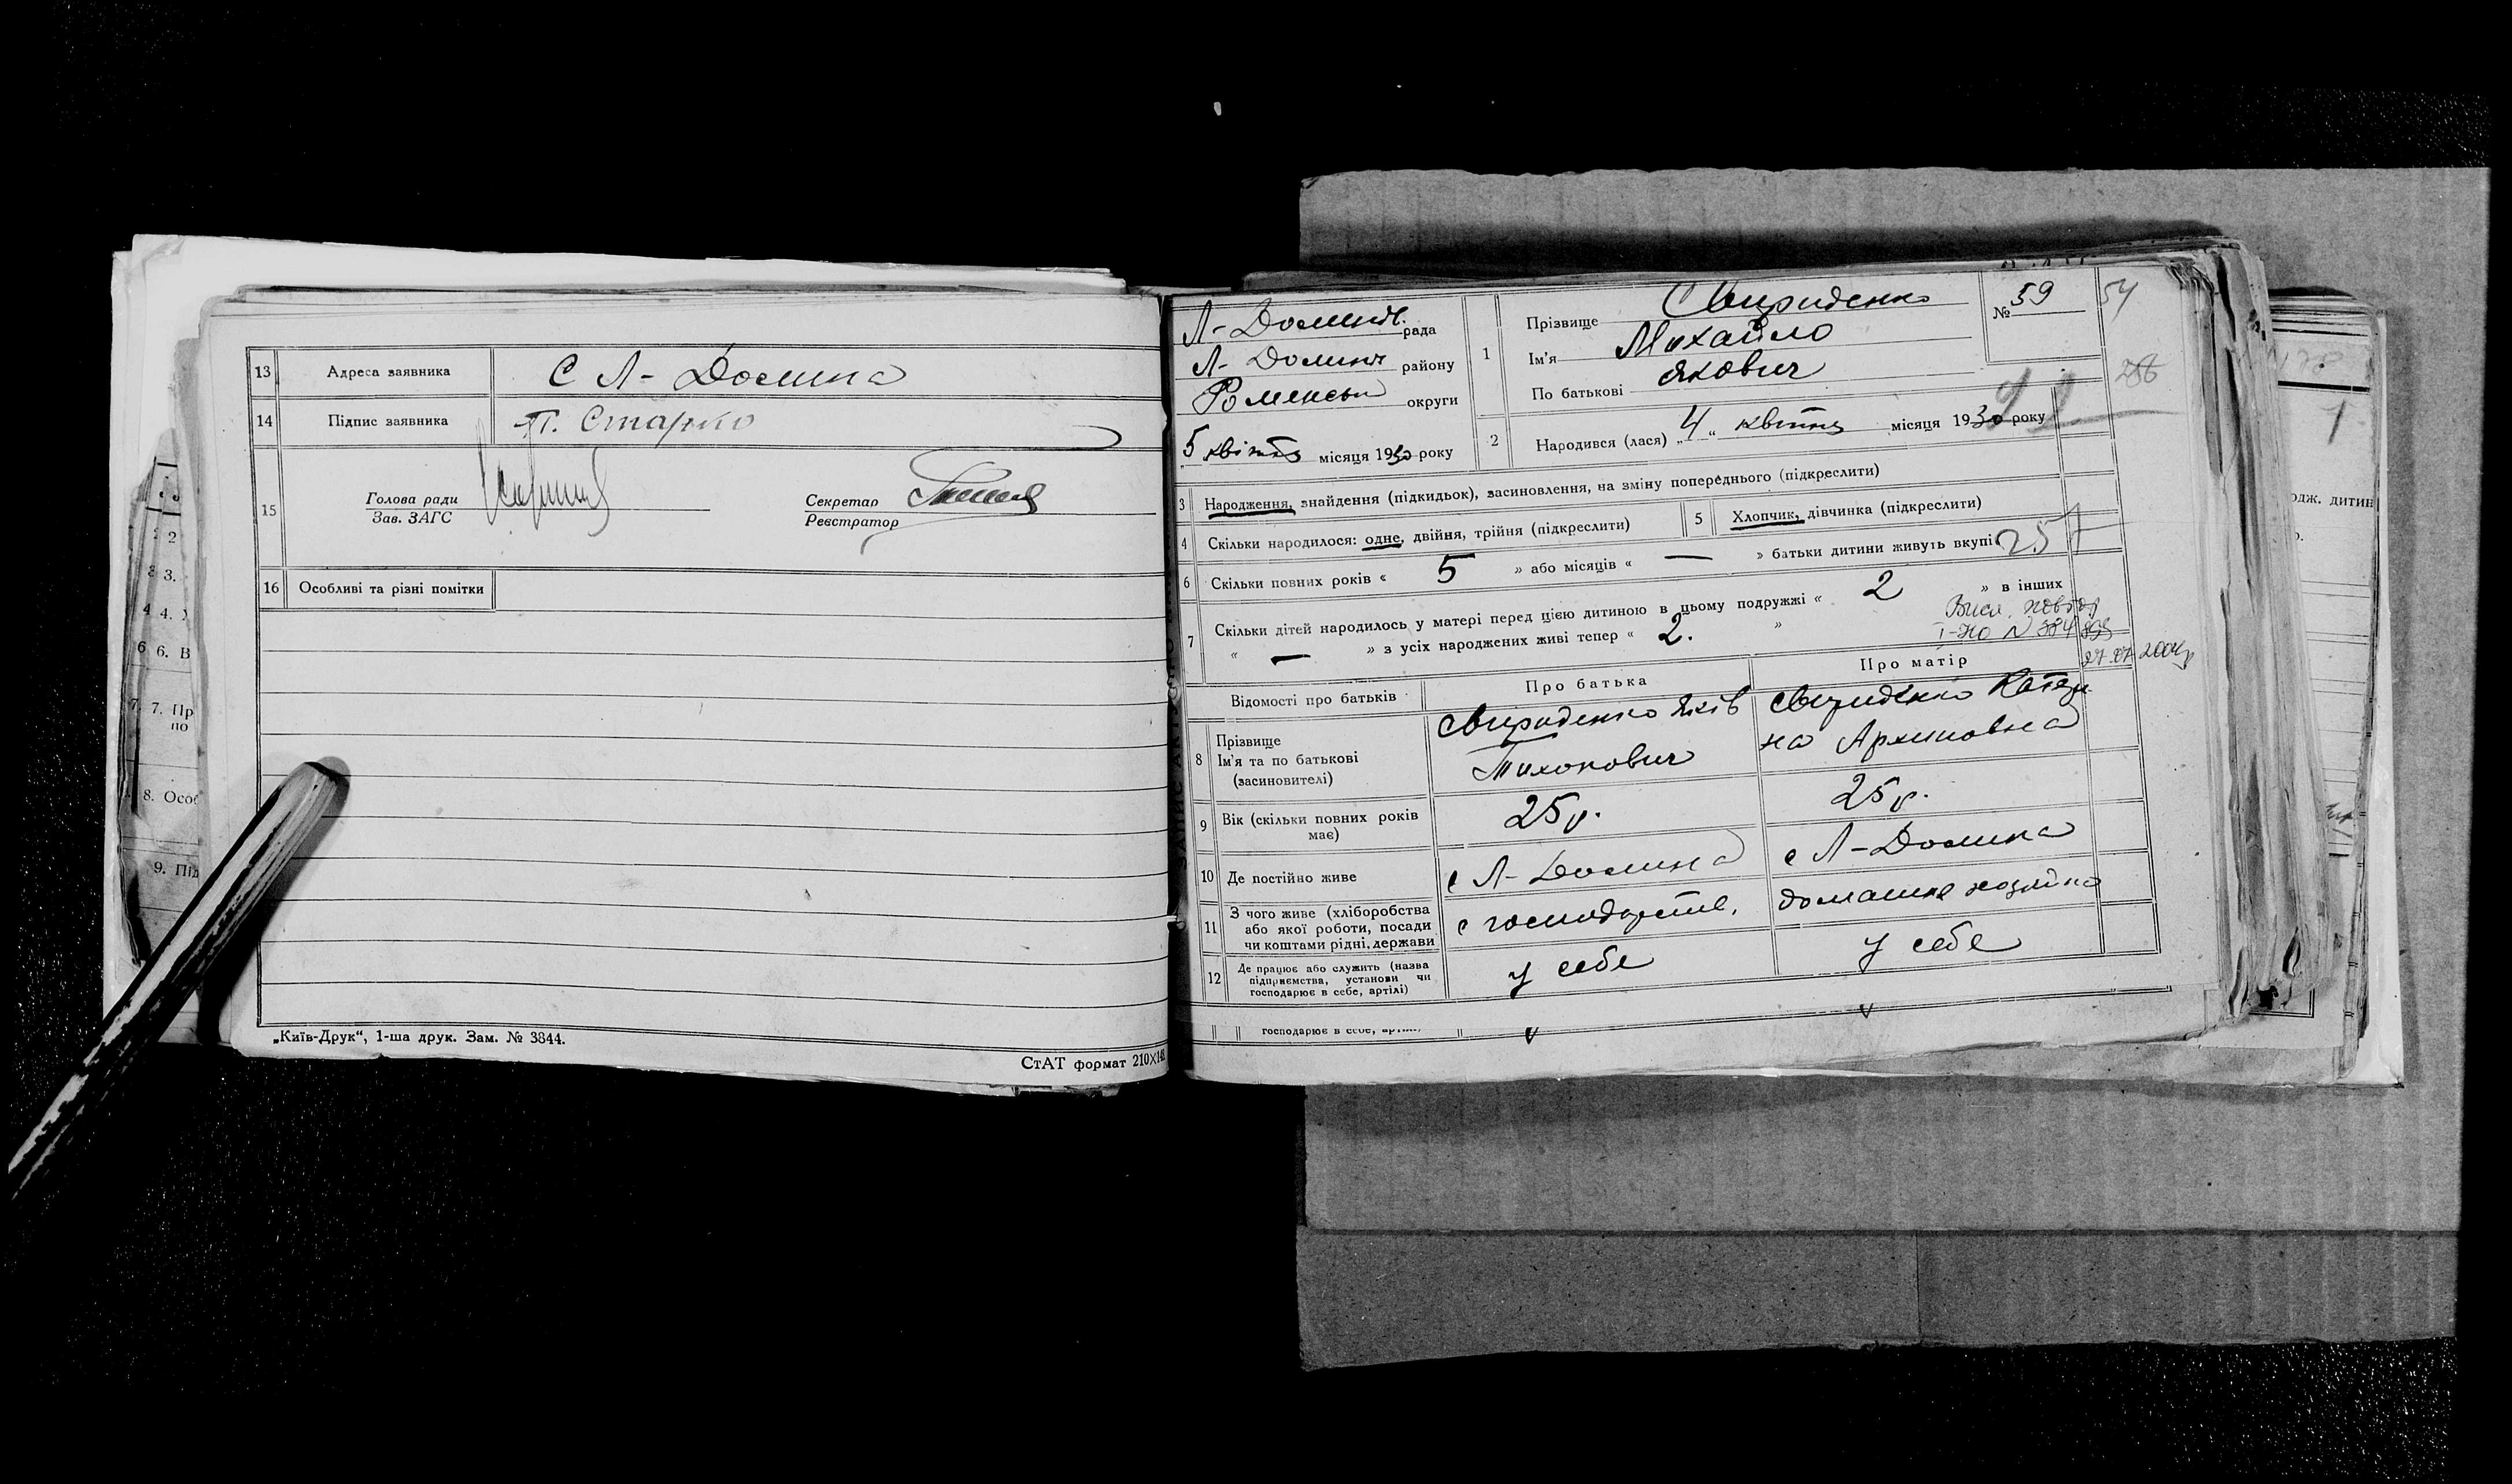 13 Адреса заявника С Л- Долина
14 Підпис заявника П. Старко
15 Голова ради
Зав. ЗАГС
Секретар
Реєстратор
16 Особливі та різні помітки
„Київ-Друк“, 1-ша друк. Зам. № 3844.
СтАТ формат 210×148
Л- Долинів. рада
Л- Долинс району
Роменськ округи
5 квітня місяця 1930 року
1 Прізвище Свириденко
Ім'я Михайло
По батькові Якович
№ 59
54
286
2 Народився (лася) „4“ квітня місяця 1930 року
3 Народження, знайдення (підкидьок), засиновлення, на зміну попереднього (підкреслити)
4 Скільки народилося: одне, двійня, трійня (підкреслити)
5 Хлопчик, дівчинка (підкреслити)
6 Скільки повних років « 5 » або місяців « — » батьки дитини живуть вкупі
257
7 Скільки дітей народилось у матері перед цією дитиною в цьому подружжі « 2 » в інших
« — » з усіх народжених живі тепер « 2. »
Вид. повтор
І-НО № 384
27.07.2004р
Відомості про батьків
Про батька
Про матір
8 Прізвище
Ім'я та по батькові
(засиновителі)
Свириденко Яків
Тихонович
Свириденко Катери
на Архиповна
9 Вік (скільки повних років
має)
25 р.
25 р.
10 Де постійно живе
с Л- Долина
с Л-Долина
11 З чого живе (хліборобства
або якої роботи, посади
чи коштами рідні, держави
с господарств.
домашня хозяйка
12 Де працює або служить (назва
підприємства, установи чи
господарює в себе, артілі)
у себе
у себе
господарює в себе,